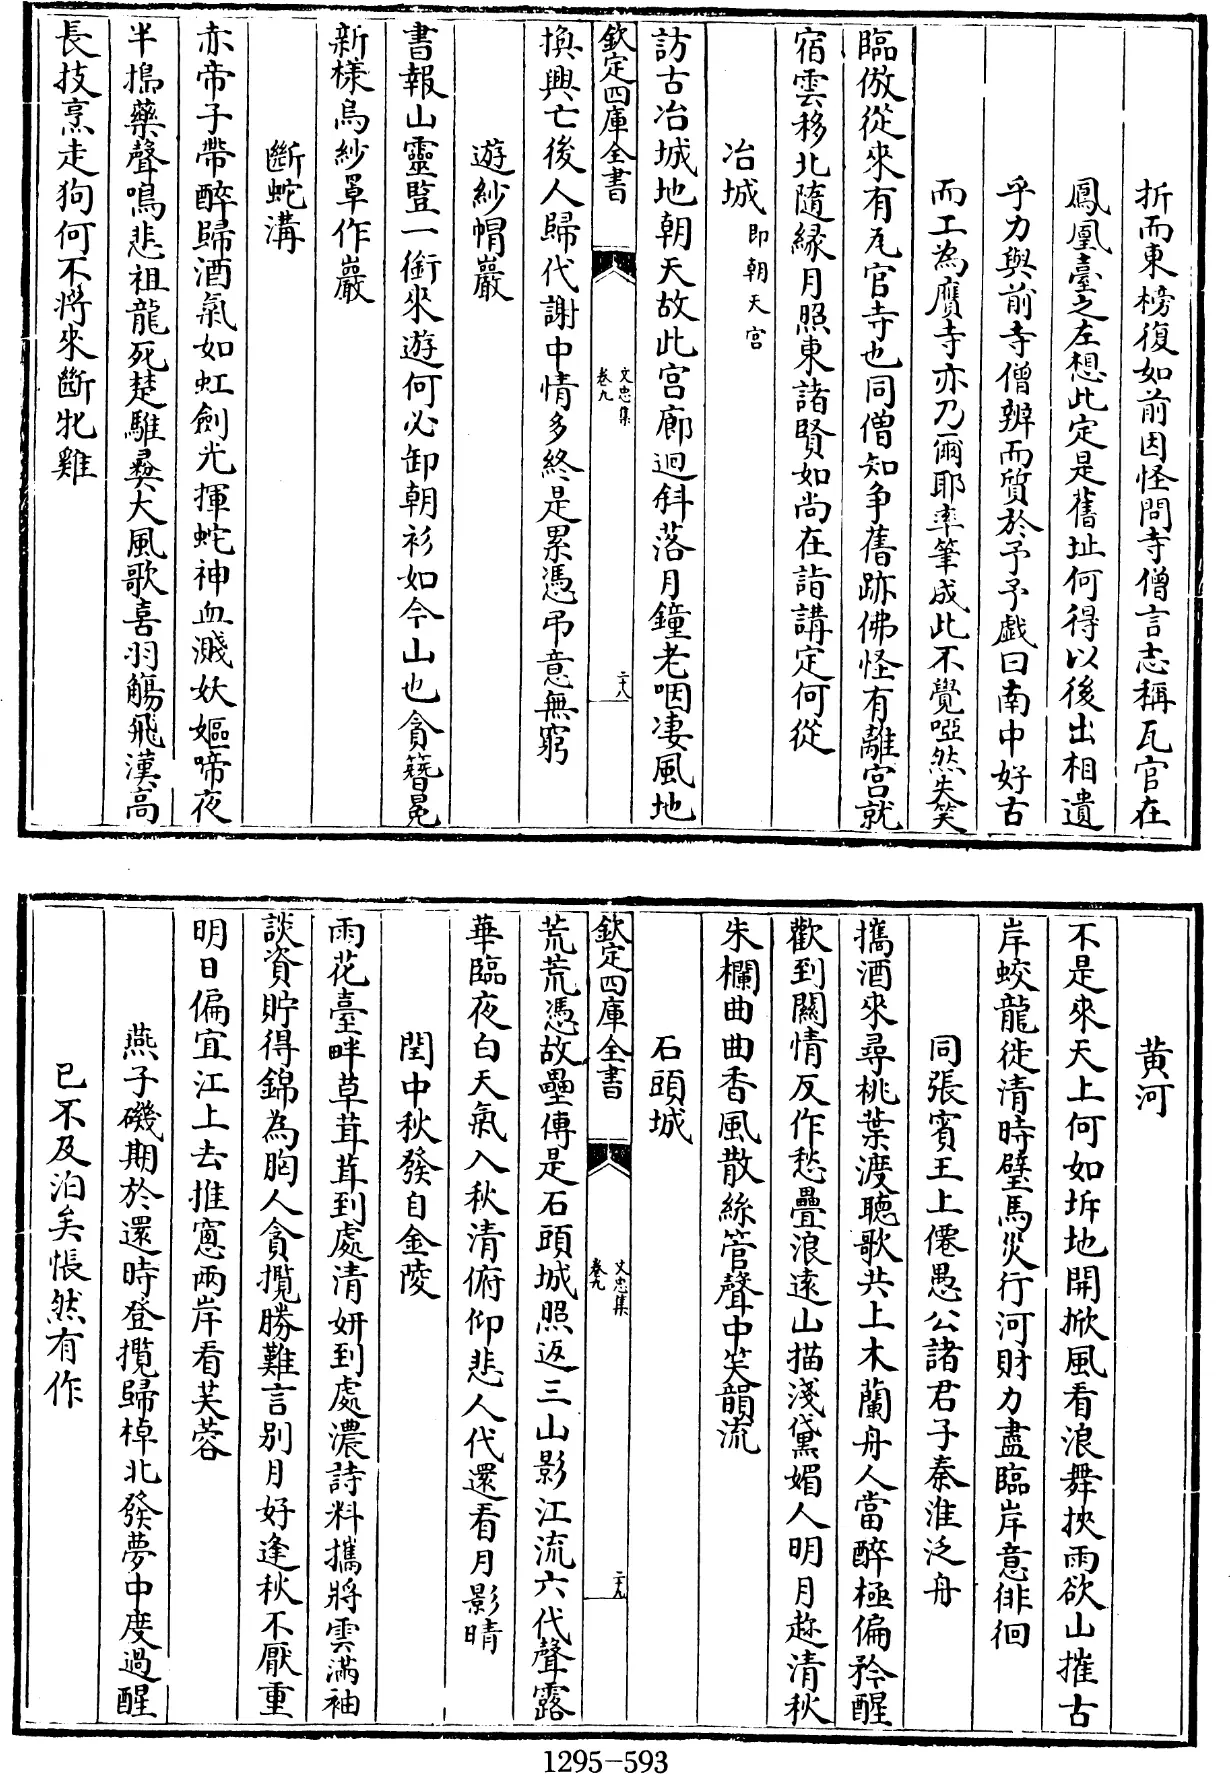 折而東榜復如前因怪問寺僧言志稱瓦官在
鳳凰臺之左想此定是舊址何得以後出相遺
乎力與前寺僧辨而質於予予戲曰南中好古
而工為贋寺亦乃爾耶率筆成此不覺啞然失笑
臨倣從來有瓦官寺也同僧知争舊跡佛怪有離宫就
宿雲移北隨緣月照東諸賢如尚在詣講定何從
冶城即朝天宫
訪古冶城地朝天故此宫廊迴斜落月鐘老咽凄風地
欽定四庫全書
文忠集
卷九
二十八
換興亡後人歸代謝中情多終是累憑弔意無窮
遊紗帽巖
書報山靈暨一銜來遊何必卸朝衫如今山也貪簪冕
新様烏紗罩作巖
斷蛇溝
赤帝子帶醉歸酒氣如虹劍光揮蛇神血濺妖嫗啼夜
半搗藥聲鳴悲祖龍死楚騅彛大風歌喜羽觴飛漢高
長技烹走狗何不將來斷牝雞
黄河
不是來天上何如坼地開掀風看浪舞挾雨欲山摧古
岸蛟龍徙清時璧馬災行河財力盡臨岸意徘徊
同張賓王上僊愚公諸君子秦淮泛舟
攜酒來尋桃葉渡聽歌共上木蘭舟人當醉極偏矜醒
歡到關情反作愁疊浪遠山描淺黛媚人明月趂清秋
朱欄曲曲香風散絲管聲中笑韻流
石頭城
欽定四庫全書
文忠集
卷九
二十九
荒荒憑故壘傳是石頭城照返三山影江流六代聲露
華臨夜白天氣入秋清俯仰悲人代還看月影晴
閏中秋發自金陵
雨花臺畔草茸茸到處清妍到處濃詩料攜將雲滿袖
談資貯得錦為胸人貪攬勝難言别月好逢秋不厭重
明日偏宜江上去推窻兩岸看芙蓉
燕子磯期於還時登攬歸棹北發夢中度過醒
已不及泊矣悵然有作
1295-593